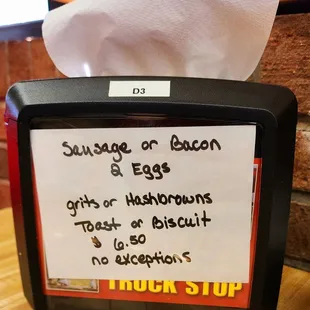 D3
Sausage or Bacon
2 Eggs
grits or Hashbrowns
Toast or Biscuit
$ 6.50
no exceptions
TRUCK STOP